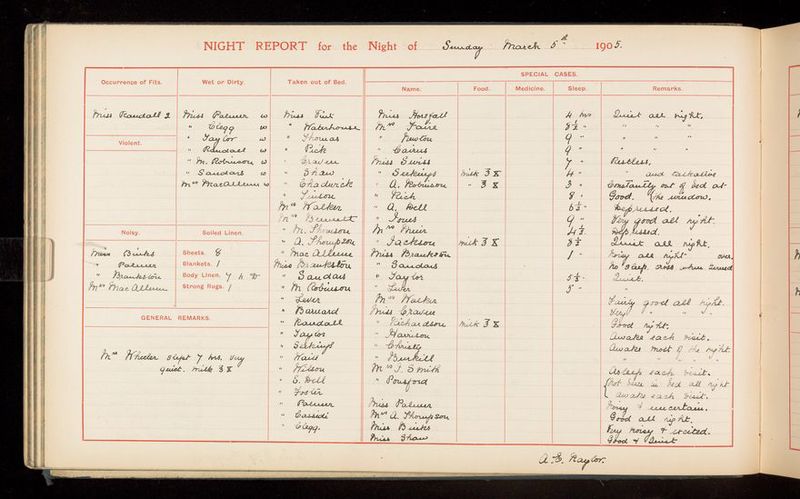 NIGHT REPORT for the Night of Sunday March 5th 1905.
SPECIAL CASES.
Occurrence of Fits. Wet or Dirty. Taken out of Bed. Name. Food. Medicine. Sleep. Remarks.
Miss Randall 2
Violent.
Noisy.
Miss Binks
" Palmer
" Brankston
Mrs MacAllum
Miss Palmer w
" Clegg w
" Taylor w
" Randall w
" M. Robinson w
" Sandars w
Mrs MacAllum w
Soiled Linen.
Sheets. 8
Blankets. 1
Body Linen. 7
Strong Rugs. 1
GENERAL REMARKS.
Mrs Wheeler slept 7 hrs. very
quiet. milk 3
Miss
" Waterhouse
" Thomas
" Peck
" Craven
" Shaw
" Chadwick
"
Mrs Walker
Mrs Bennett
" M. Thomson
" A. Thompson
" MacAllum
Miss Brankston
" Sandars
" M Robinson
" Lever
" Barnard
" Randall
" Taylor
" Seekings
" Waid
" Wilson
" S. Bell
" Foster
" Palmer
" Cassidi
" Clegg.
Miss Horsfall 4 hrs Quiet all night.
Mrs Faire 8½ " " " "
" Newton 9 " " " "
" Cairns 9 " " " "
Miss Swiss 7 " Restless,
" Seekings milk 3 4 " " and talkative
" A. Robinson " 3 3 " Constantly out of bed at
" Rich 8 " Good. the window.
" A. Bell 6½ " Depressed.
" Jones 9 " Very good all night.
Mrs Muir 4½ Depressed.
" Jackson milk 3 8½ Quiet all night.
Miss Brankston 1 " Noisy all night over,
" Sandars no sleep. cross when turned
" Taylor 5½ " Quiet.
" Lever 5 "
Mrs Walker Fairly good all night.
Miss Craven Very " " "
" Richardson milk 3 Good night.
" Harrison Awake each visit.
" Christy Awake most of the night
" Burkill " " " "
Mrs J. Smith Asleep each visit.
" Ponsford Not been in bed all night
awake each visit.
Miss Palmer Noisy & uncertain.
Mrs A. Thompson Good all night.
Miss Binks Very noisy & excited.
Miss Shaw Good & Quiet
A. E. Naylor.